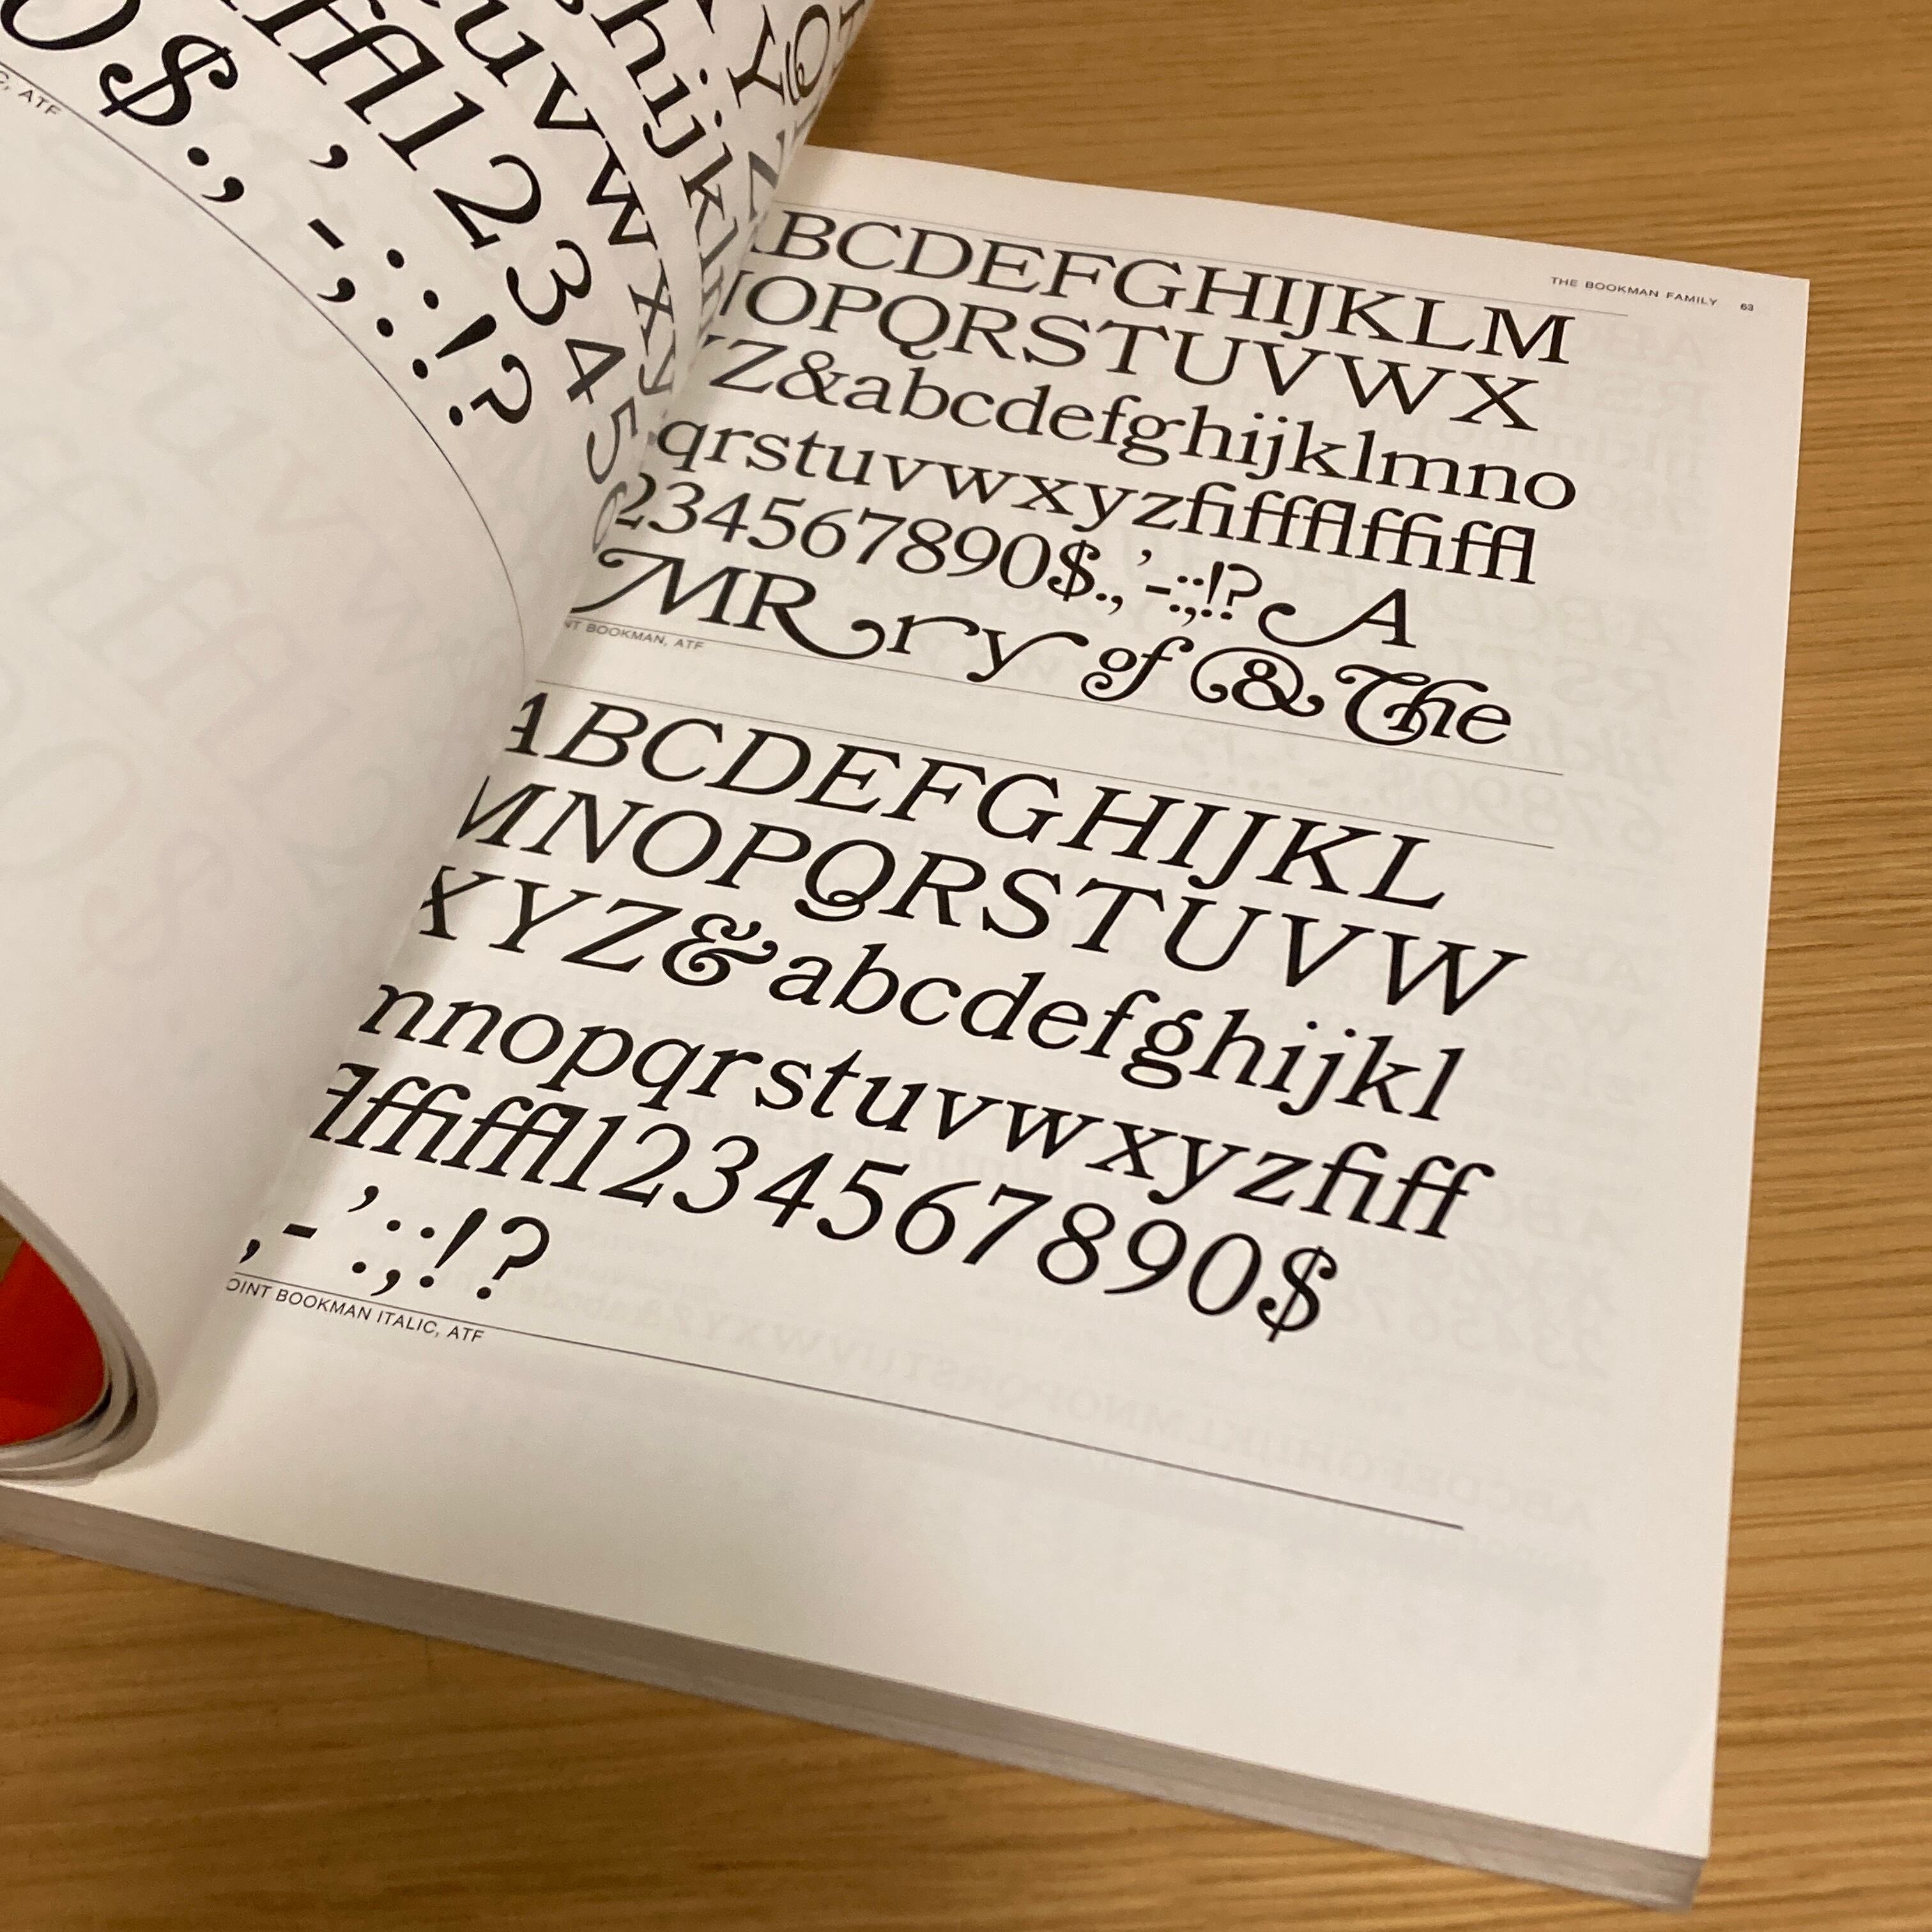 C, ATF
0$.,’-;:!?
ffl12345
uvwxy
hijkl
THE BOOKMAN FAMILY 63
BCDEFGHIJKLM
OPQRSTUVWX
YZ&abcdefghijklmno
qrstuvwxyzfiffflffiffl
234567890$.,’-:;!? A
MR r y of & The
NT BOOKMAN, ATF
ABCDEFGHIJKL
MNOPQRSTUVW
XYZ&abcdefghijkl
mnopqrstuvwxyzfiff
flffiffl1234567890$
,-’:;!?
OINT BOOKMAN ITALIC, ATF